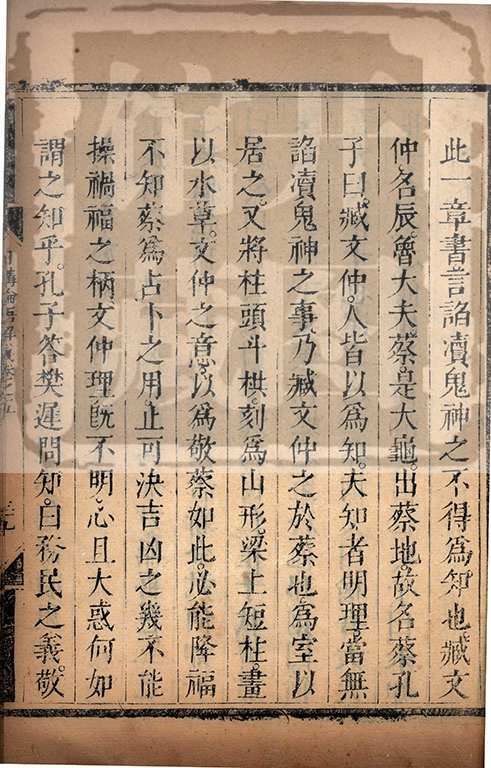 此一章書言諂瀆鬼神之不得為知也臧文
仲名辰魯大夫蔡是大龜出蔡地故名蔡孔
子曰臧文仲人皆以為知夫知者明理當無
諂瀆鬼神之事乃臧文仲之於蔡也為室以
居之又將柱頭斗栱刻為山形梁上短柱畫
以水草文仲之意以為敬蔡如此必能降福
不知蔡為占卜之用止可決吉凶之幾不能
操禍福之柄文仲理既不明心且大惑何如
謂之知乎孔子答樊遲問知曰務民之義敬
日講論語解義卷之五